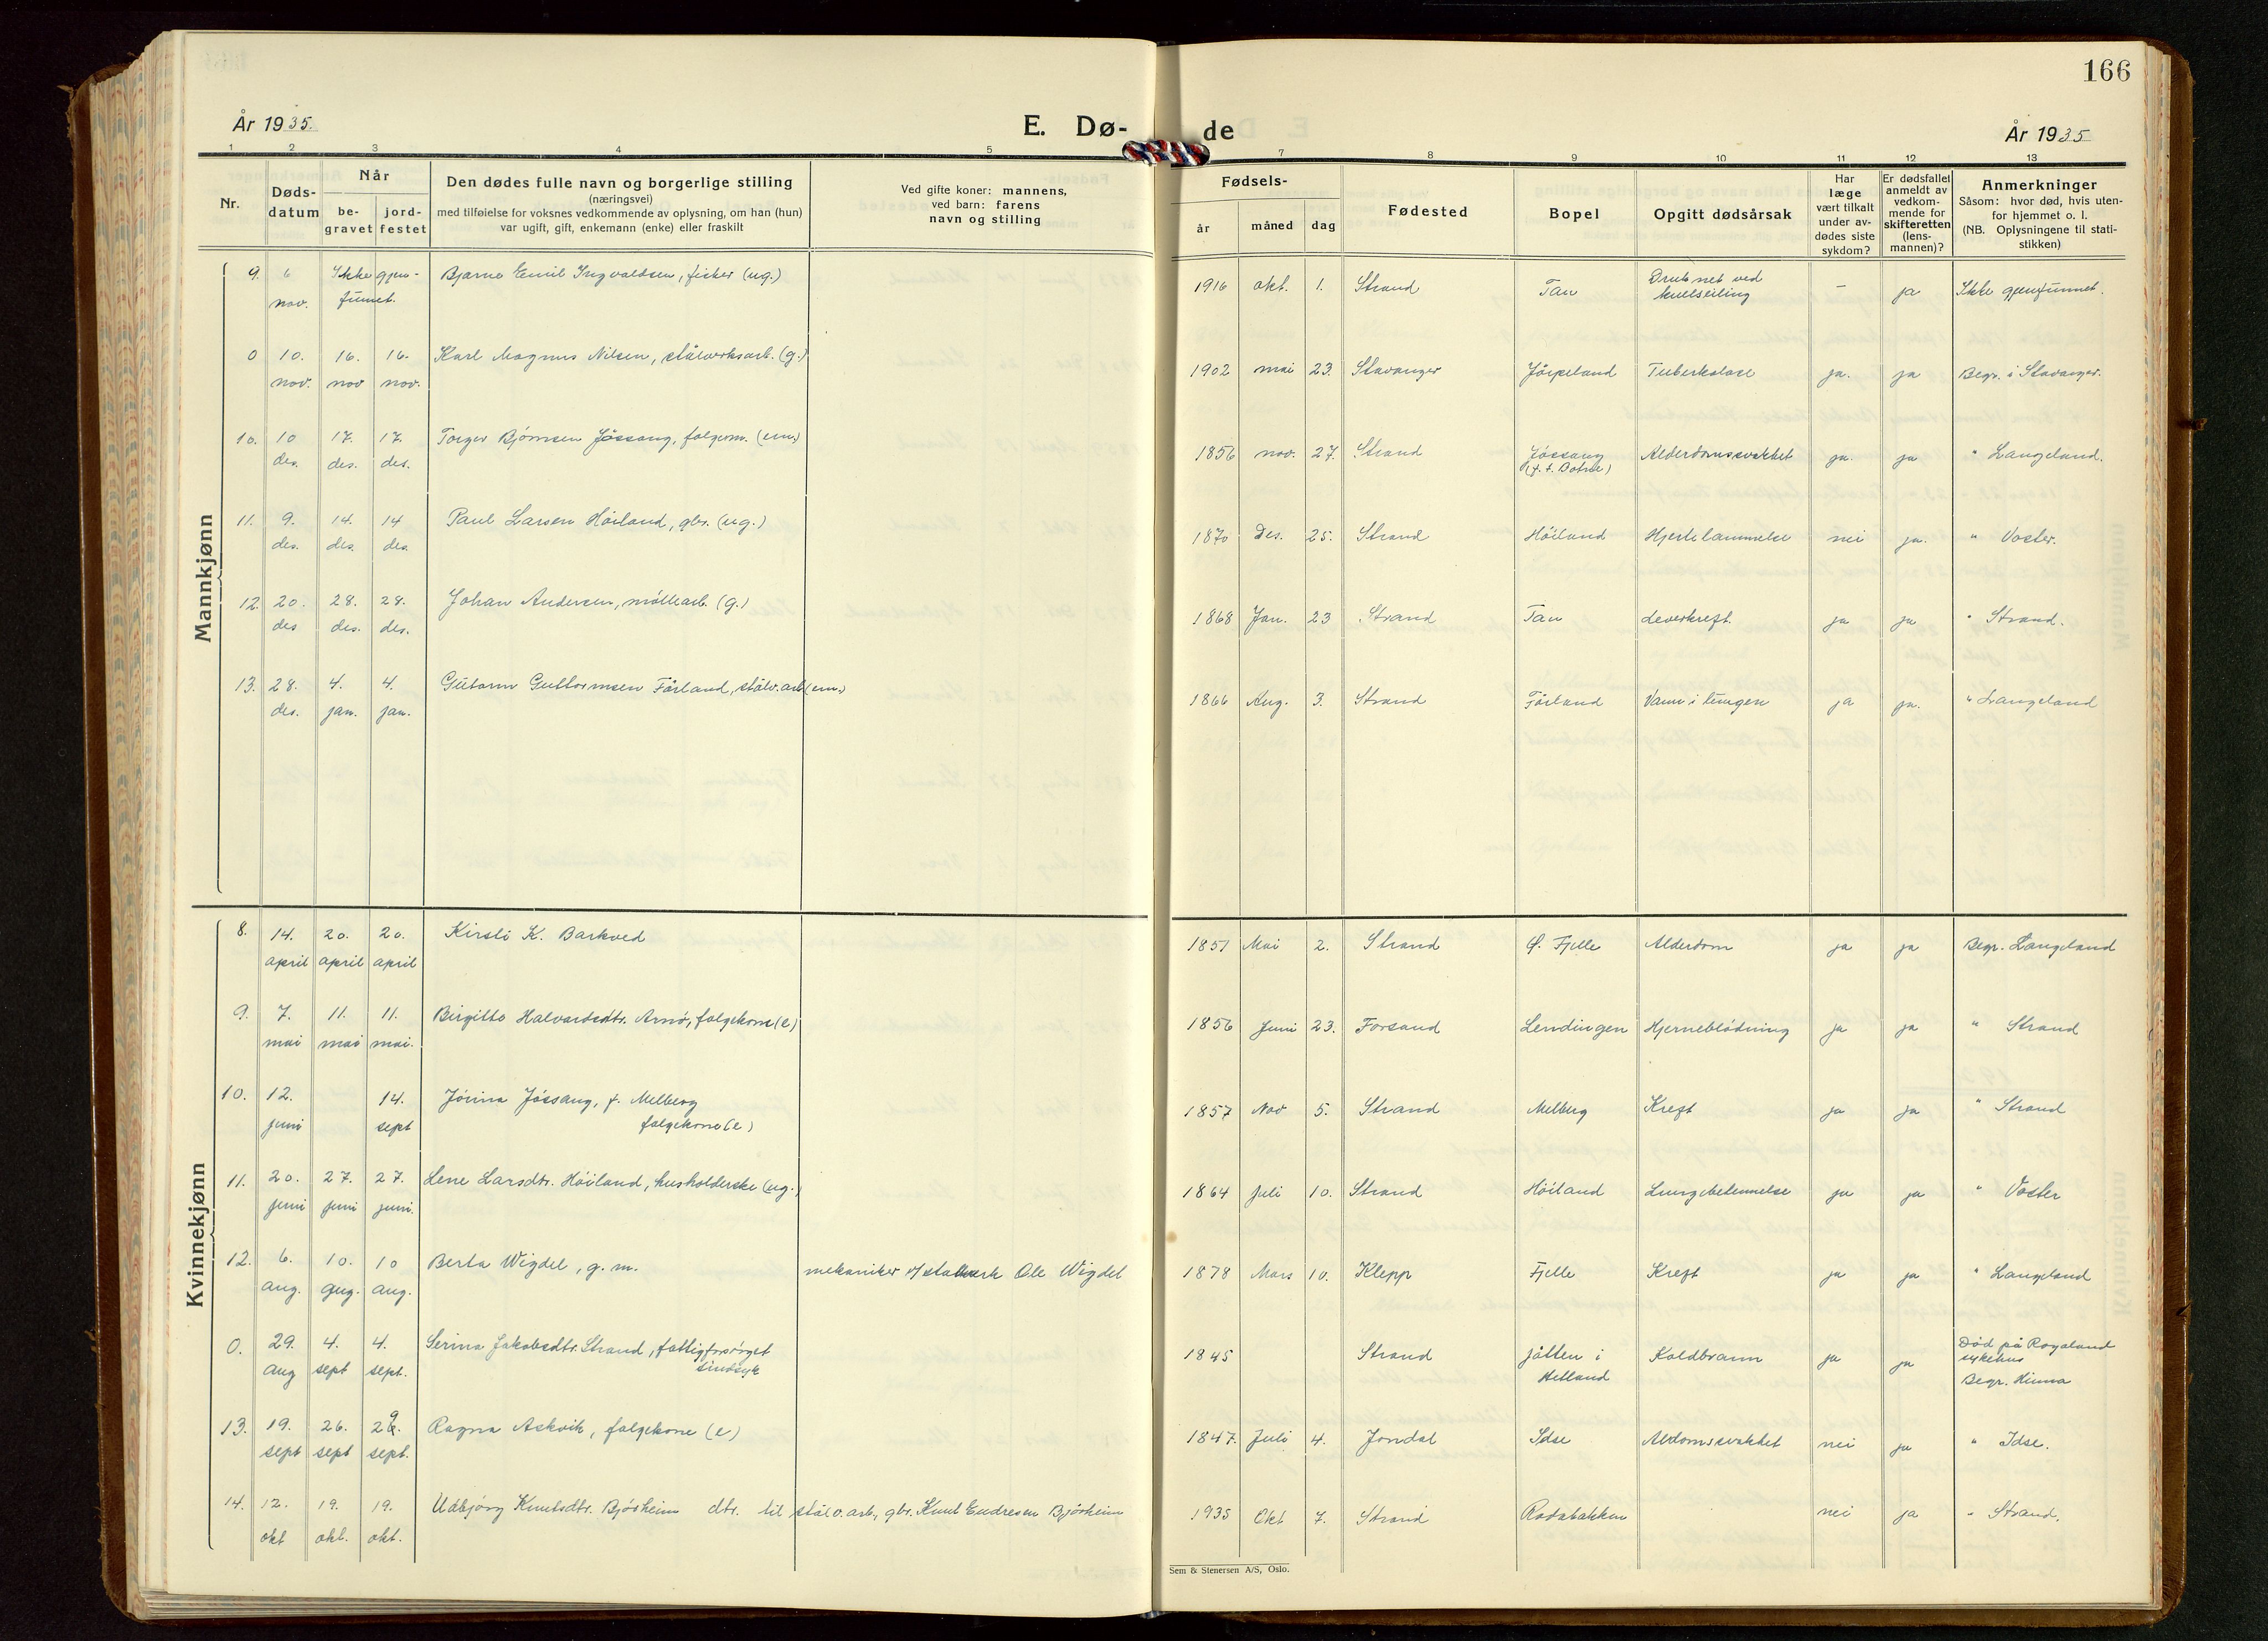 166
År 1935.
E. Dø-
de
År 1935
1 2 3 4 5 7 8 9 10 11 12 13
Nr.
Døds-
datum
Når
be-
gravet
jord-
festet
Den dødes fulle navn og borgerlige stilling
(næringsvei)
med tilføielse for voksnes vedkommende av oplysning, om han (hun)
var ugift, gift, enkemann (enke) eller fraskilt
Ved gifte koner: mannens,
ved barn: farens
navn og stilling
Fødsels-
år måned dag
Fødested
Bopel
Opgitt dødsårsak
Har
læge
vært tilkalt
under av-
dødes siste
sykdom?
Er dødsfallet
anmeldt av
vedkom-
mende for
skifteretten
(lens-
mannen)?
Anmerkninger
Såsom: hvor død, hvis uten-
for hjemmet o. l.
(NB. Oplysningene til stati-
stikken)
Mannkjønn
9. 6 Ikke gjen- Bjarne Emil Ingvaldsen, fisker (ug.) 1916 okt. 1. Strand Tau Druknet ved – ja Ikke gjenfunnet.
nov. funnet. kullseiling
0 10. 16. 16. Karl Magnus Nilsen, stålverksarb. (g.) 1902 mai 23. Stavanger Jörpeland Tuberkulose ja. ja Begr. i Stavanger.
nov. nov nov.
10. 10 17. 17. Torger Bjørnsen Jössang, folgem. (em.) 1856 nov. 27. Strand Jössang Alderdomssvakhet ja. ja " Langeland.
des. des. des. (f. t. Botne)
11. 9. 14. 14 Paul Larsen Höiland, gbr. (ug.) 1870 Des. 25. Strand Höiland Hjertelammelse nei ja. " Voster.
des. des. des.
12. 20. 28. 28. Johan Andersen, möllearb. (g.) 1868 Jan. 23 Strand Tau Leverkreft. ja ja " Strand.
des des. des.
13. 28. 4. 4. Gutorm Guttormsen Förland, stålv.arb (em.) 1866 Aug. 3. Strand Förland Vann i lungen ja ja. " Langeland
des. jan. jan.
Kvinnekjønn
8. 14. 20. 20. Kirsti K. Barkved 1851 Mai 2. Strand Ø. Fjelle Alderdom ja ja Begr. Langeland
april april april
9. 7. 11. 11. Birgitte Halvardsdtr. Arnö, folgekone (e) 1856 Juni 23. Forsand Lendingen Hjerneblödning ja ja " Strand
mai mai mai.
10. 12. 14. Jörina Jössang, f. Melberg 1857 Nov 5. Strand Melberg Kreft ja ja " Strand
juni sept folgekone (e)
11. 20. 27. 27. Lene Larsdtr. Höiland, husholderske (ug.) 1864 Juli 10. Strand Höiland Lungebetennelse ja ja " Voster
juni juni juni.
12. 6. 10. 10 Berta Wigdel, g. m. mekaniker v/ stalverk Ole Wigdel 1878 Mars 10. Klepp Fjelle Kreft ja ja " Langeland
aug. aug. aug.
0. 29. 4. 4. Serina Jakobsdtr. Strand, fattigforsörget 1845 Strand Jåtten i Koldbrann ja ja Död på Rogaland
aug sept sept. sindsyk Hetland sykehus
Begr. Hinna
13. 19. 26. 29. Ragna Askvik, folgekone (e) 1847. Juli 4. Jondal Idse Aldomssvakhet nei ja " Idse.
sept sept sept.
14. 12. 19. 19. Udbjörg Knutsdtr. Björheim dtr. til stålv.arb., gbr. Knut Endresen Björheim 1935 Okt 7. Strand Rodabakken nei ja " Strand.
okt okt. okt.
Sem & Stenersen A/S, Oslo.